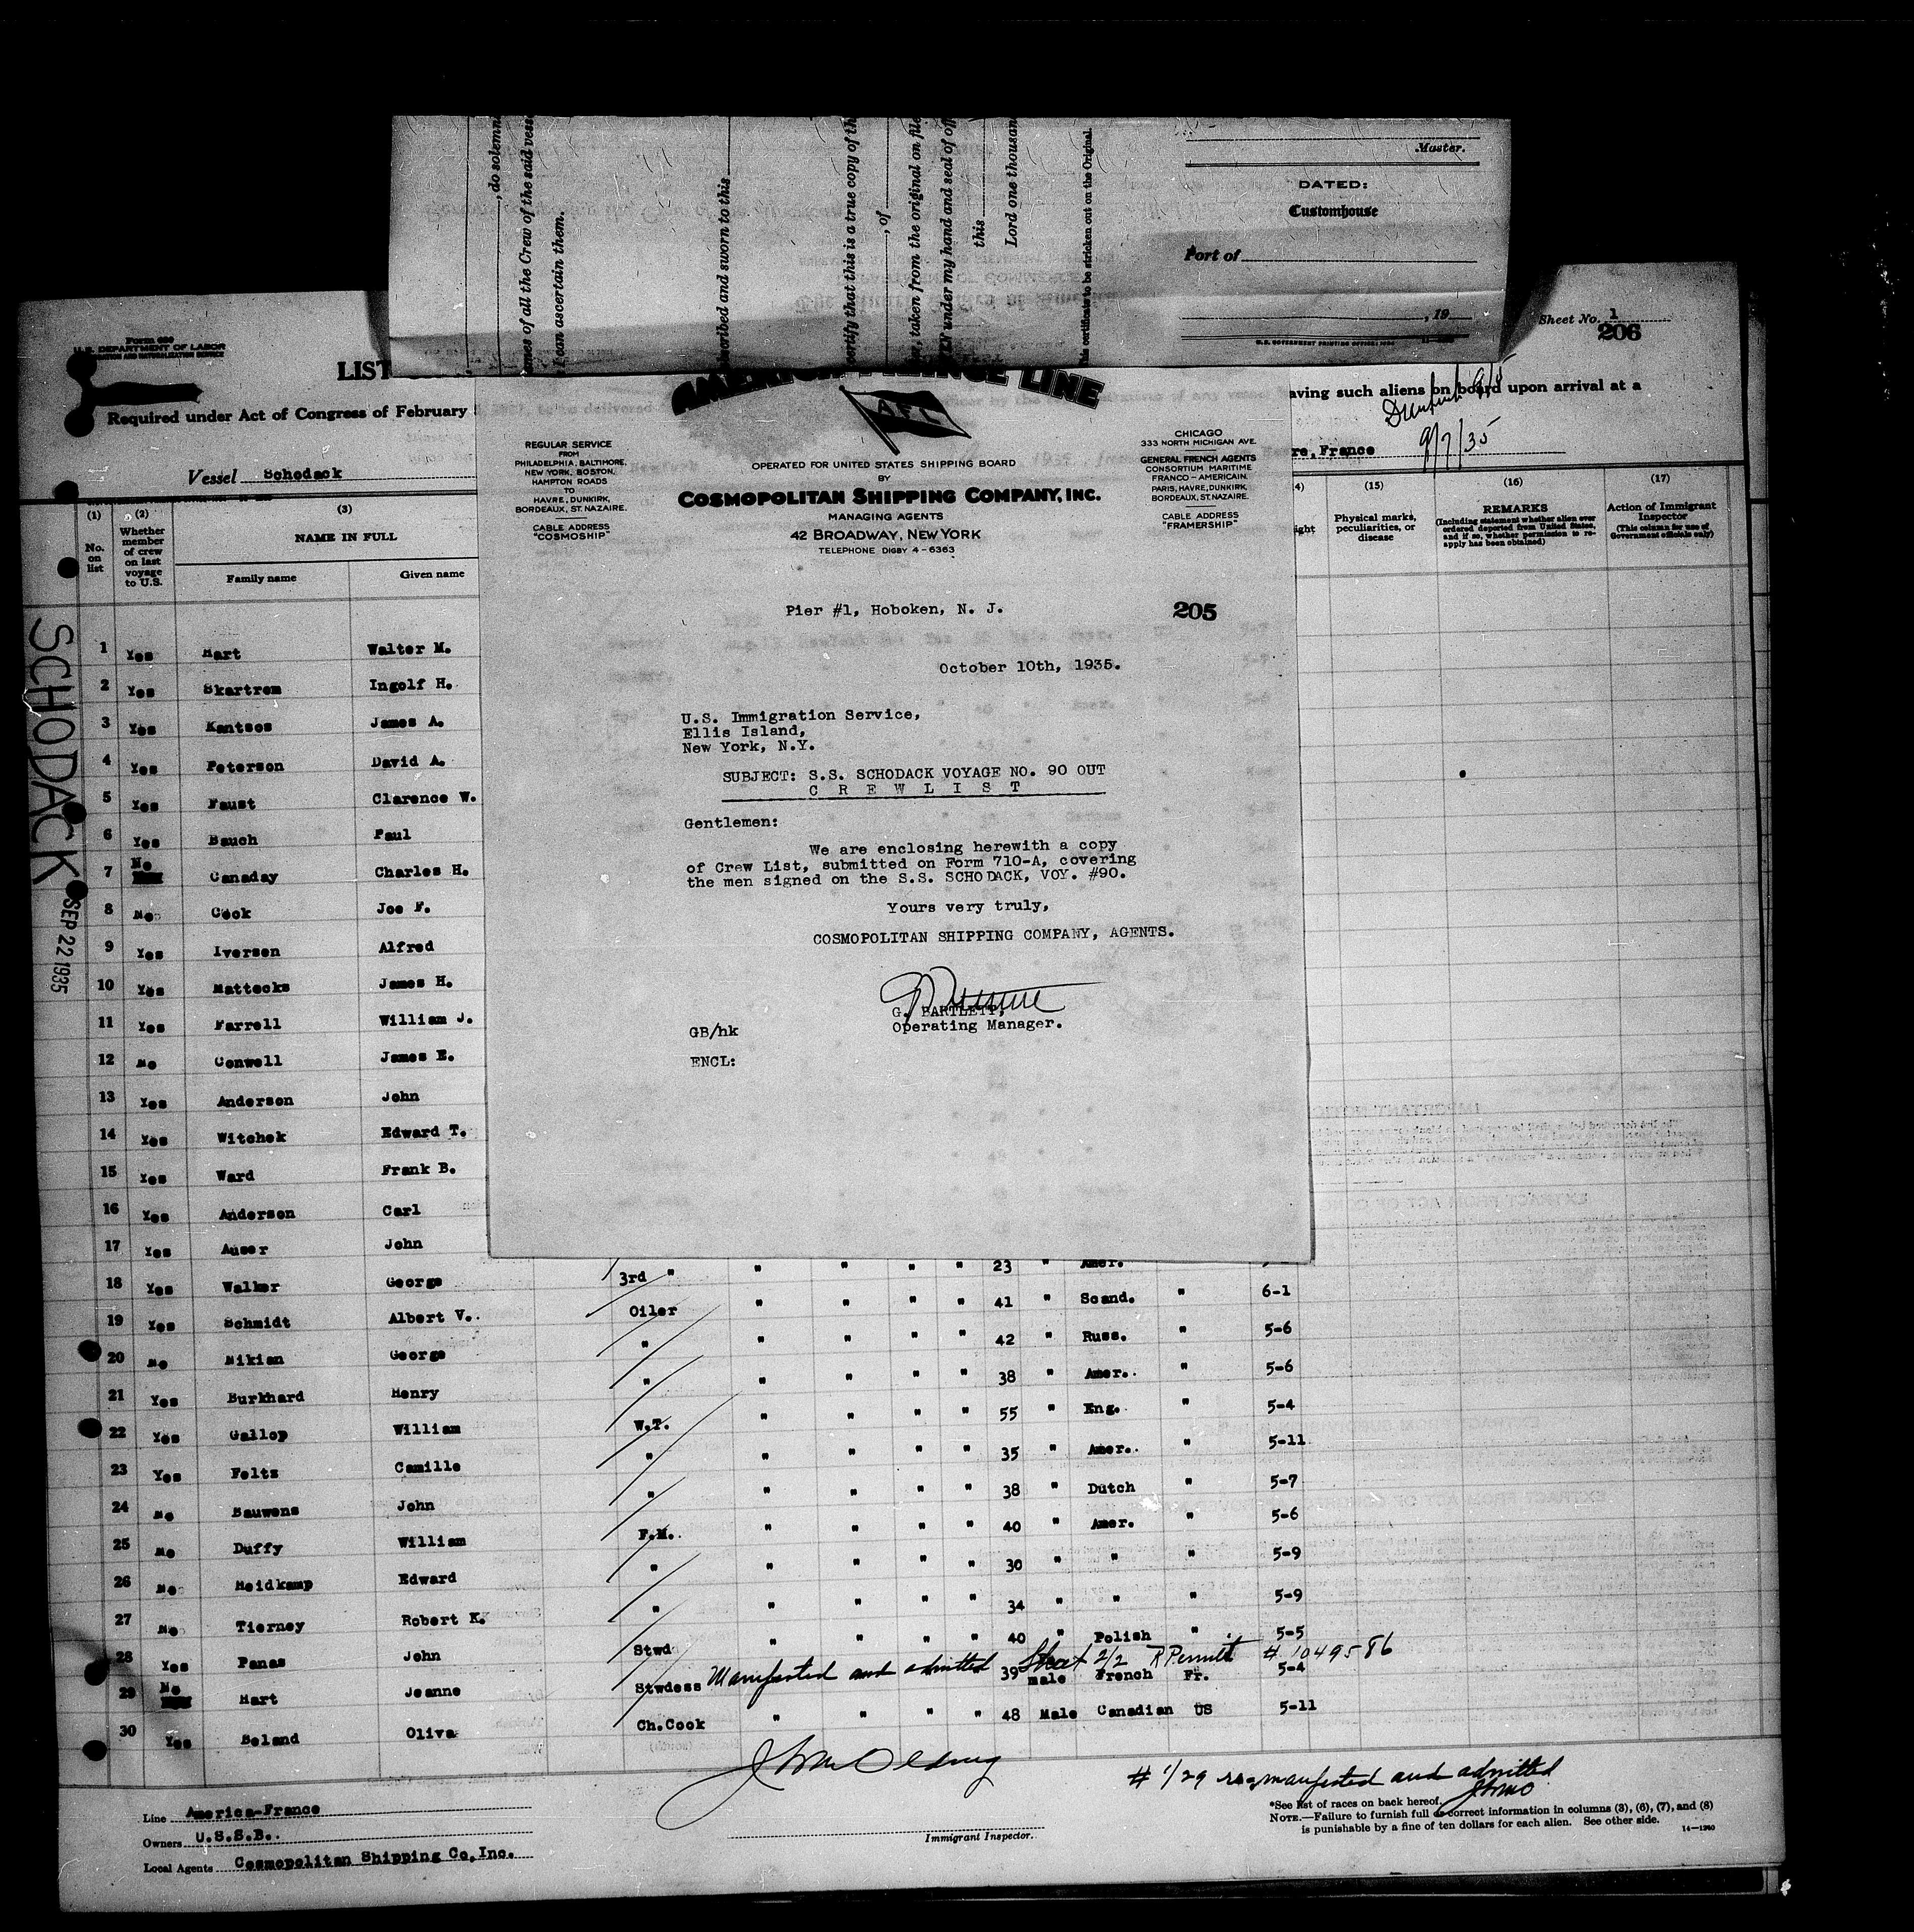 , do solemn
mes of all the Crew of the said vess
I can ascertain them.
scribed and sworn to this
certify that this is a true copy of th
, of
, taken from the original on file
EN under my hand and seal of off
this
Lord one thousan
his certificate to be stricken out on the Original.
Master.
DATED:
Customhouse
Port of
, 19
U. S. GOVERNMENT PRINTING OFFICE
Sheet No. 1
206
Form 680
U. S. DEPARTMENT OF LABOR
IMMIGRATION AND NATURALIZATION SERVICE
LIST
Required under Act of Congress of February
aving such aliens on board upon arrival at a
Vessel Schodack
re, France
9/7/35
(1)
No. on list
(2)
Whether member of crew on last voyage to U.S.
(3)
NAME IN FULL
Family name
Given name
4)
ight
(15)
Physical marks, peculiarities, or disease
(16)
REMARKS
(Including statement whether alien ever ordered deported from United States, and if so, whether permission to reapply has been obtained)
(17)
Action of Immigrant Inspector
(This column for use of Government officials only)
AMERICA FRANCE LINE
A.F.L.
REGULAR SERVICE
FROM
PHILADELPHIA, BALTIMORE,
NEW YORK, BOSTON,
HAMPTON ROADS
TO
HAVRE, DUNKIRK,
BORDEAUX, ST. NAZAIRE.
CABLE ADDRESS
"COSMOSHIP"
OPERATED FOR UNITED STATES SHIPPING BOARD
BY
COSMOPOLITAN SHIPPING COMPANY, INC.
MANAGING AGENTS
42 BROADWAY, NEW YORK
TELEPHONE DIGBY 4-6363
CHICAGO
333 NORTH MICHIGAN AVE.
GENERAL FRENCH AGENTS
CONSORTIUM MARITIME
FRANCO-AMERICAIN.
PARIS, HAVRE, DUNKIRK,
BORDEAUX, ST. NAZAIRE.
CABLE ADDRESS
"FRAMERSHIP"
Pier #1, Hoboken, N. J.
205
October 10th, 1935.
U.S. Immigration Service,
Ellis Island,
New York, N.Y.
SUBJECT: S.S. SCHODACK VOYAGE NO. 90 OUT
C R E W L I S T
Gentlemen:
We are enclosing herewith a copy
of Crew List, submitted on Form 710-A, covering
the men signed on the S.S. SCHODACK, VOY. #90.
Yours very truly,
COSMOPOLITAN SHIPPING COMPANY, AGENTS.
G. BARTLETT,
Operating Manager.
GB/hk
ENCL:
SCHODACK
SEP 22 1935
1 Yes Hart Walter M.
2 Yes Skartrem Ingolf H.
3 Yes Kantsos James A.
4 Yes Peterson David A.
5 Yes Faust Clarence W.
6 Yes Bauch Paul
7 No Canaday Charles H.
8 No Cook Joe F.
9 Yes Iversen Alfred
10 Yes Mattocks James H.
11 Yes Farrell William J.
12 No Conwell James E.
13 Yes Anderson John
14 Yes Witchek Edward T.
15 Yes Ward Frank B.
16 Yes Anderson Carl
17 Yes Auser John
18 Yes Walker George 3rd " " " " " 23 " Amer.
19 Yes Schmidt Albert V. Oiler " " " " 41 " Scand. " 6-1
20 No Mikian George " " " " " 42 " Russ. " 5-6
21 Yes Burkhard Henry " " " " " 38 " Amer. " 5-6
22 Yes Gallop William W.T. " " " " 55 " Eng. " 5-4
23 Yes Feltz Camille " " " " " 35 " Amer. " 5-11
24 No Bauwens John " " " " " 38 " Dutch " 5-7
25 No Duffy William F.M. " " " " 40 " Amer. " 5-6
26 No Heidkamp Edward " " " " " 30 " " " 5-9
27 No Tierney Robert K. " " " " " 34 " " " 5-9
28 Yes Panas John Stwd " " " " 40 " Polish " 5-5
29 No Hart Jeanne Stwdess Manifested and admitted 39 male French Fr. 5-4
Sheet 2/2 R Permit # 1049586
30 Yes Beland Oliva Ch.Cook " " " " 48 Male Canadian US 5-11
# 1/29 manifested and admitted
Line America-France
Owners U.S.S.B.
Local Agents Cosmopolitan Shipping Co, Inc.
Immigrant Inspector.
*See list of races on back hereof.
NOTE.—Failure to furnish full or correct information in columns (3), (6), (7), and (8)
is punishable by a fine of ten dollars for each alien. See other side.
14—1240